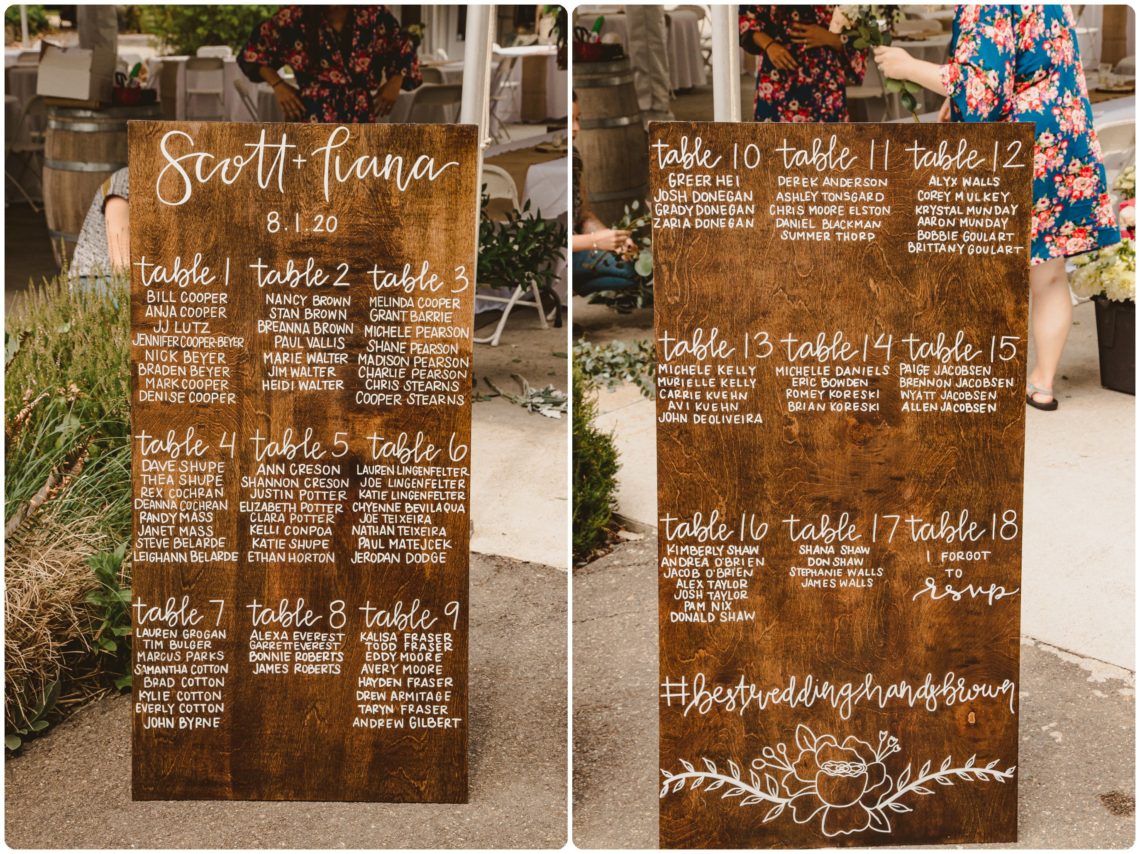 Scott + Tiana
8.1.20
table 1
BILL COOPER
ANJA COOPER
JJ LUTZ
JENNIFER COOPER-BEYER
NICK BEYER
BRADEN BEYER
MARK COOPER
DENISE COOPER
table 2
NANCY BROWN
STAN BROWN
BREANNA BROWN
PAUL VALLIS
MARIE WALTER
JIM WALTER
HEIDI WALTER
table 3
MELINDA COOPER
GRANT BARRIE
MICHELE PEARSON
SHANE PEARSON
MADISON PEARSON
CHARLIE PEARSON
CHRIS STEARNS
COOPER STEARNS
table 4
DAVE SHUPE
THEA SHUPE
REX COCHRAN
DEANNA COCHRAN
RANDY MASS
JANET MASS
STEVE BELARDE
LEIGHANN BELARDE
table 5
ANN CRESON
SHANNON CRESON
JUSTIN POTTER
ELIZABETH POTTER
CLARA POTTER
KELLI CONPOA
KATIE SHUPE
ETHAN HORTON
table 6
LAUREN LINGENFELTER
JOE LINGENFELTER
KATIE LINGENFELTER
CHYENNE BEVILAQUA
JOE TEIXEIRA
NATHAN TEIXEIRA
PAUL MATEJCEK
JERODAN DODGE
table 7
LAUREN GROGAN
TIM BULGER
MARCUS PARKS
SAMANTHA COTTON
BRAD COTTON
KYLIE COTTON
EVERLY COTTON
JOHN BYRNE
table 8
ALEXA EVEREST
GARRETT EVEREST
BONNIE ROBERTS
JAMES ROBERTS
table 9
KALISA FRASER
TODD FRASER
EDDY MOORE
AVERY MOORE
HAYDEN FRASER
DREW ARMITAGE
TARYN FRASER
ANDREW GILBERT
table 10
GREER HEI
JOSH DONEGAN
GRADY DONEGAN
ZARIA DONEGAN
table 11
DEREK ANDERSON
ASHLEY TONSGARD
CHRIS MOORE ELSTON
DANIEL BLACKMAN
SUMMER THORP
table 12
ALYX WALLS
COREY MULKEY
KRYSTAL MUNDAY
AARON MUNDAY
BOBBIE GOULART
BRITTANY GOULART
table 13
MICHELE KELLY
MURIELLE KELLY
CARRIE KUEHN
AVI KUEHN
JOHN DEOLIVEIRA
table 14
MICHELLE DANIELS
ERIC BOWDEN
ROMEY KORESKI
BRIAN KORESKI
table 15
PAIGE JACOBSEN
BRENNON JACOBSEN
WYATT JACOBSEN
ALLEN JACOBSEN
table 16
KIMBERLY SHAW
ANDREA O'BRIEN
JACOB O'BRIEN
ALEX TAYLOR
JOSH TAYLOR
PAM NIX
DONALD SHAW
table 17
SHANA SHAW
DON SHAW
STEPHANIE WALLS
JAMES WALLS
table 18
I FORGOT
TO
rsvp
#bestweddinghandsbrown